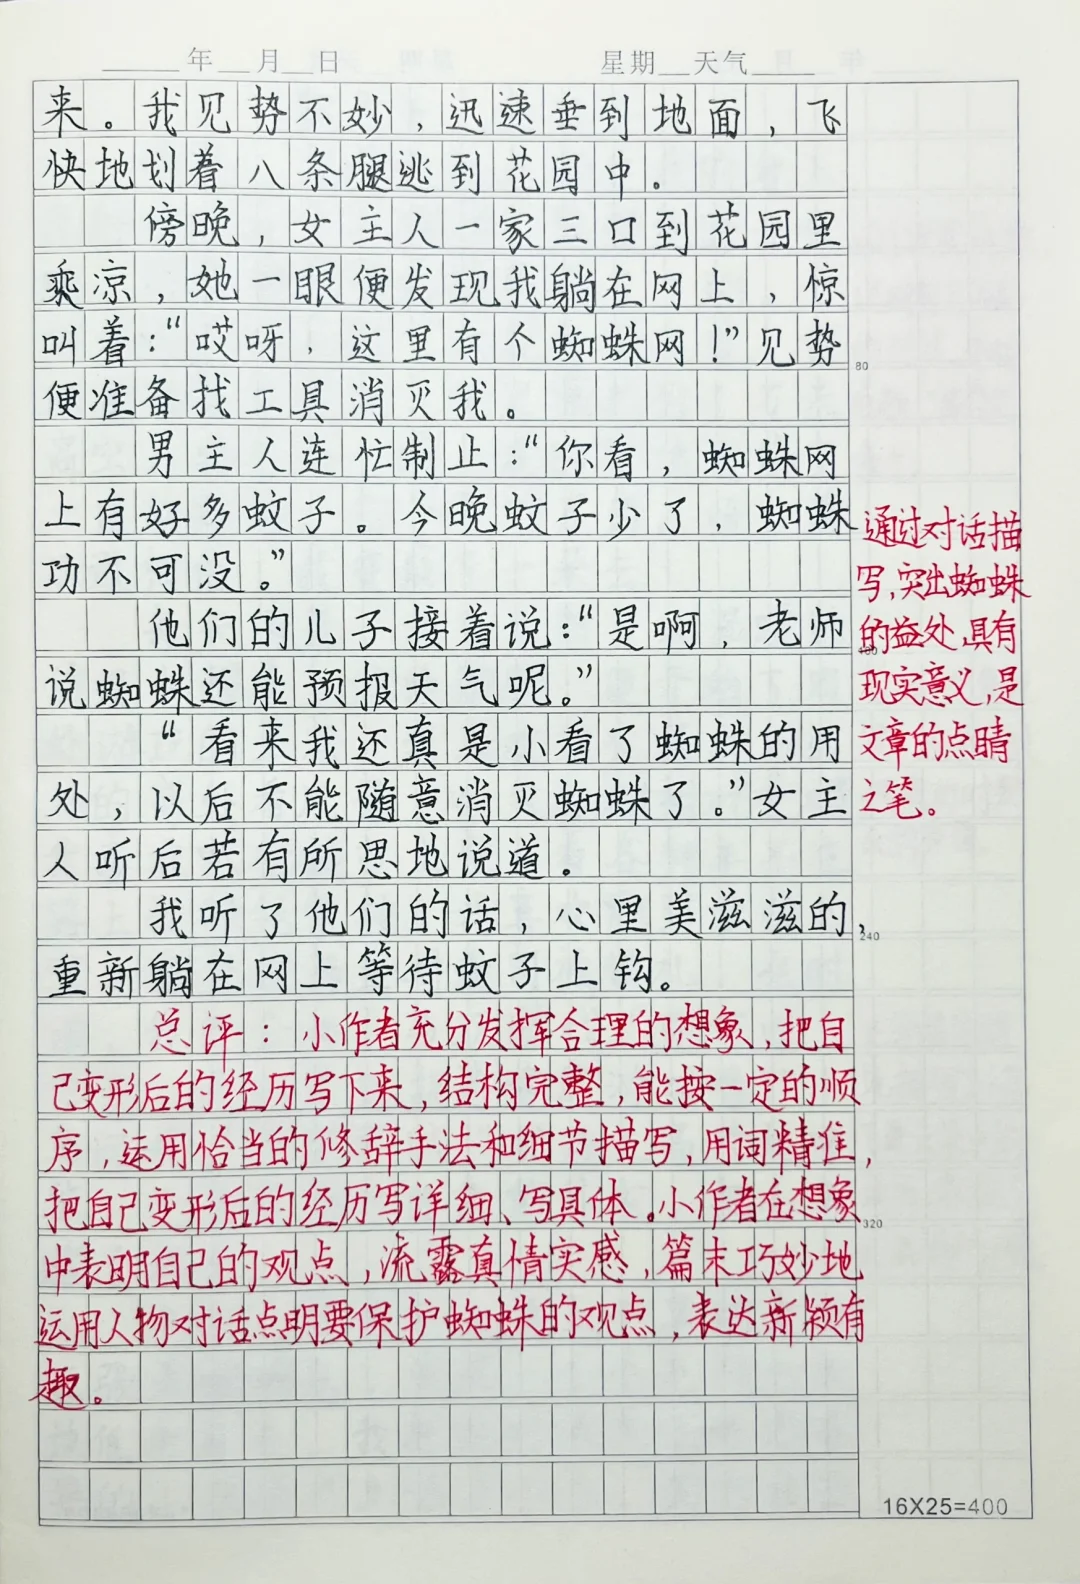 年 月 日 星期 天气
来。我见势不妙，迅速垂到地面，飞
快地划着八条腿逃到花园中。
傍晚，女主人一家三口到花园里
乘凉，她一眼便发现我躺在网上，惊
叫着：“哎呀，这里有个蜘蛛网！”见势
80
便准备找工具消灭我。
男主人连忙制止：“你看，蜘蛛网
上有好多蚊子。今晚蚊子少了，蜘蛛
功不可没。”
他们的儿子接着说：“是啊，老师
160
说蜘蛛还能预报天气呢。”
“看来我还真是小看了蜘蛛的用
处，以后不能随意消灭蜘蛛了。”女主
人听后若有所思地说道。
我听了他们的话，心里美滋滋的，
240
重新躺在网上等待蚊子上钩。
通过对话描
写，突出蜘蛛
的益处，具有
现实意义，是
文章的点睛
之笔。
总评：小作者充分发挥合理的想象，把自
己变形后的经历写下来，结构完整，能按一定的顺
序，运用恰当的修辞手法和细节描写，用词精准，
把自己变形后的经历写详细、写具体。小作者在想象
320
中表明自己的观点，流露真情实感，篇末巧妙地
运用人物对话点明要保护蜘蛛的观点，表达新颖有
趣。
16X25=400